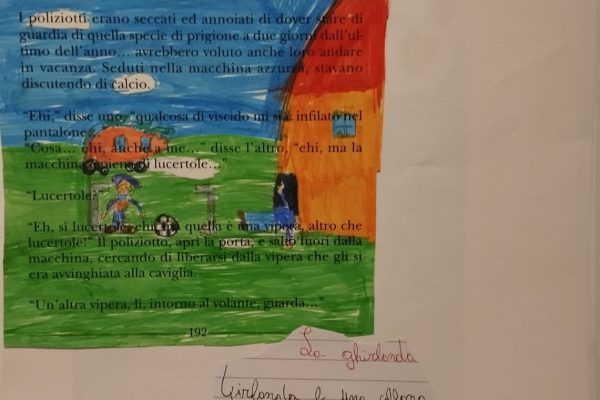 I poliziotti erano seccati ed annoiati di dover stare di
guardia di quella specie di prigione a due giorni dall'ul-
timo dell'anno... avrebbero voluto anche loro andare
in vacanza. Seduti nella macchina azzurra, stavano
discutendo di calcio.
"Ehi," disse uno, "qualcosa di viscido mi si è infilato nel
pantalone"
"Cosa... ehi, anche a me..." disse l'altro, "ehi, ma la
macchina è piena di lucertole..."
"Lucertole?"
"Eh, sì lucertole, ehi, ma quella è una vipera, altro che
lucertole!" Il poliziotto, aprì la porta, e saltò fuori dalla
macchina, cercando di liberarsi dalla vipera che gli si
era avvinghiata alla caviglia.
"Un'altra vipera, lì, intorno al volante, guarda..."
192
La ghirlanda